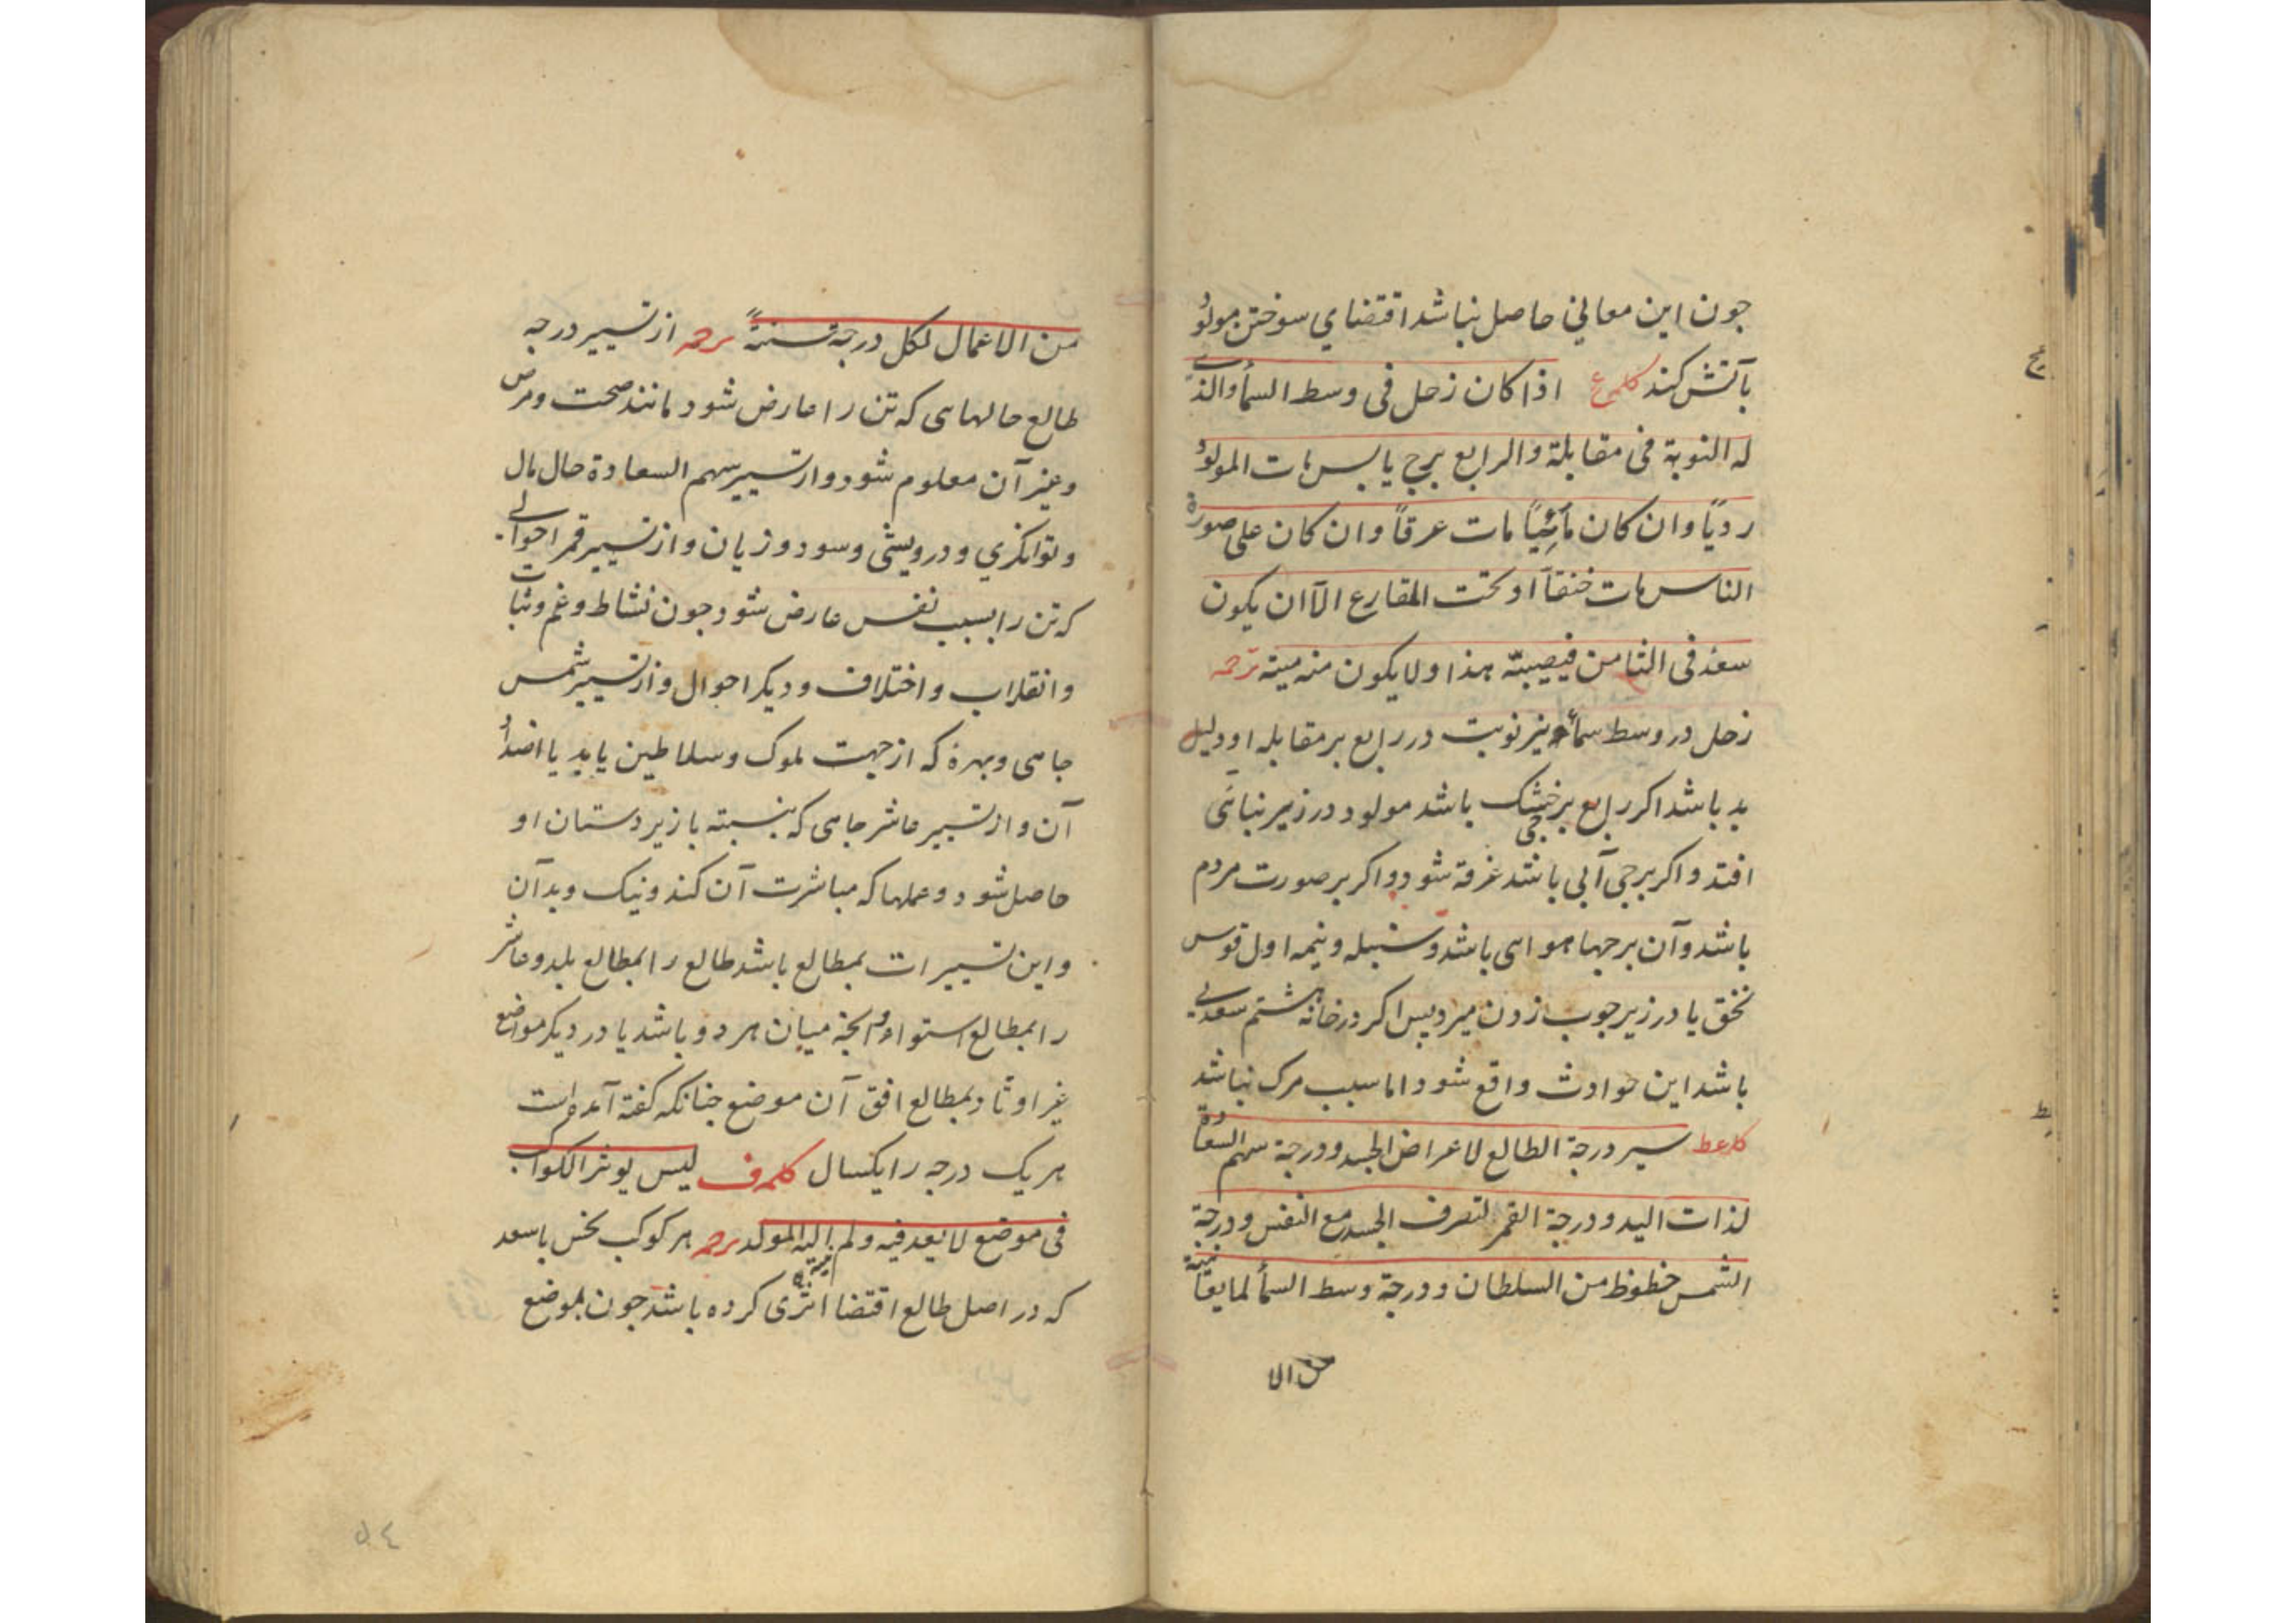 جون این معانی حاصل نباشد اقتضای سوختن مولود
بآتش کند کلمه عح اذا کان زحل فی وسط السمأ والذی
له النوبة فی مقابلة والرابع برج یابس مات المولود
ردیًا وان کان مائیًا مات عرقاً وان کان علی صورة
الناس مات خنقاً او تحت المقارع الا ان یکون
سعد فی الثامن فیصیبه هذا ولا یکون منه میتة ترجمه
زحل در وسط سمأ ونیر نوبت در رابع بر مقابله او دلیل
بد باشد اکر رابع برجی خشک باشد مولود در زیر نبائی
افتد و اکر برجی آبی باشد غرقه شود و اکر بر صورت مردم
باشد وآن برجهاء هوائی باشد و سنبله و نیمه اول قوس
نخق یا در زیر جوب زدن میرد پس اکر در خانه هشتم سعدی
باشد این حوادث واقع شود اما سبب مرک نباشد
کلمه عط سیر درجة الطالع لاعراض الجسد ودرجة سهم السعادة
لذات الید ودرجة القمر لتصرف الجسد مع النفس ودرجة
الشمس حظوظ من السلطان ودرجة وسط السمأ لما یعانیه
من الا
من الاعمال لکل درجة سنةً ترجمه از تسییر درجه
طالع حالهای که تن را عارض شود مانند صحت ومرض
وغیر آن معلوم شود واز تسییر سهم السعادة حال مال
وتوانکری ودرویشی وسود و زیان و از تسییر قمر احوالی
که تن را بسبب نفس عارض شود جون نشاط وغم وثبات
وانقلاب واختلاف ودیکر احوال واز تسییر شمس
جاهی وبهرهٔ که از جهت ملوک وسلاطین یابد یا اضداد
آن و از تسییر عاشر جاهی که بنسبته با زیردستان او
حاصل شود و عملها که مباشرت آن کند ونیک وبد آن
واین تسییرات بمطالع باشد طالع را بمطالع بلد وعاشر
را بمطالع استوا وانجه میان هر دو باشد یا در دیکر مواضع
غیر اوتاد بمطالع افق آن موضع جنانکه کفته آمده است
هر یک درجه را یکسال کلمه ف لیس یوثر الکواکب
فی موضع لا یعد فیه ولم الیه المولد ترجمه هر کوکب نحس یا سعد
که در اصل طالع اقتضا اثری کرده باشد جون بموضع
٥٤